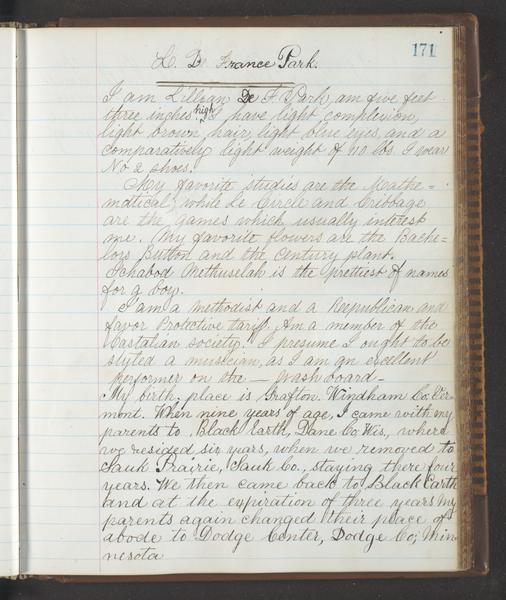 171
L. De France Park.
I am Lillian De F. Park, am five feet
three inches high I have light complexion,
light brown hair, light blue eyes, and a
comparatively light weight of 110 lbs. I wear
No 2 shoes.
My favorite studies are the Mathe=
matical, while Le Circle and Cribbage
are the games which usually interest
me. My favorite flowers are the Bache=
lors Button and the Century plant.
Ichabod Methuselah is the prettiest of names
for a boy.
I am a Methodist and a Republican and
favor Protective tariff. Am a member of the
Castalian society. I presume I ought to be
styled a musician, as I am an excellent
performer on the — washboard —
My birth place is Grafton. Windham Co, Ver=
mont. When nine years of age, I came with my
parents to, Black Earth, Dane Co, Wis, where
we resided six years, when we removed to
Sauk Prairie, Sauk Co., staying there four
years. We then came back to Black Earth
and at the expiration of three years my
parents again changed their place of
abode to Dodge Center, Dodge Co; Min
nesota